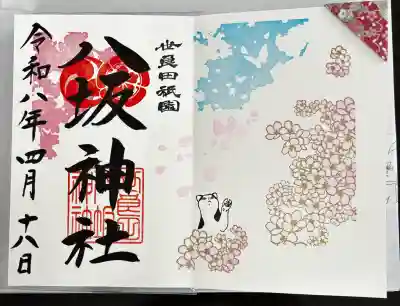 世良田祇園
八坂神社
令和八年四月十八日